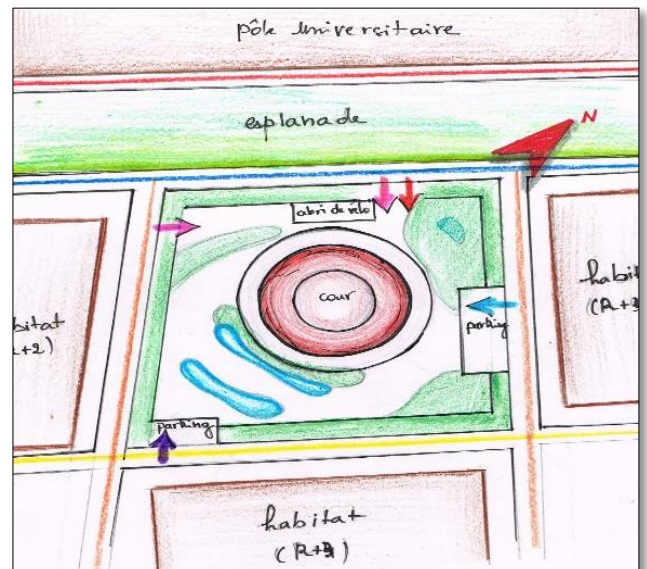 pôle universitaire
esplanade
N
abri de vélo
cour
habitat
parking
parking
habitat